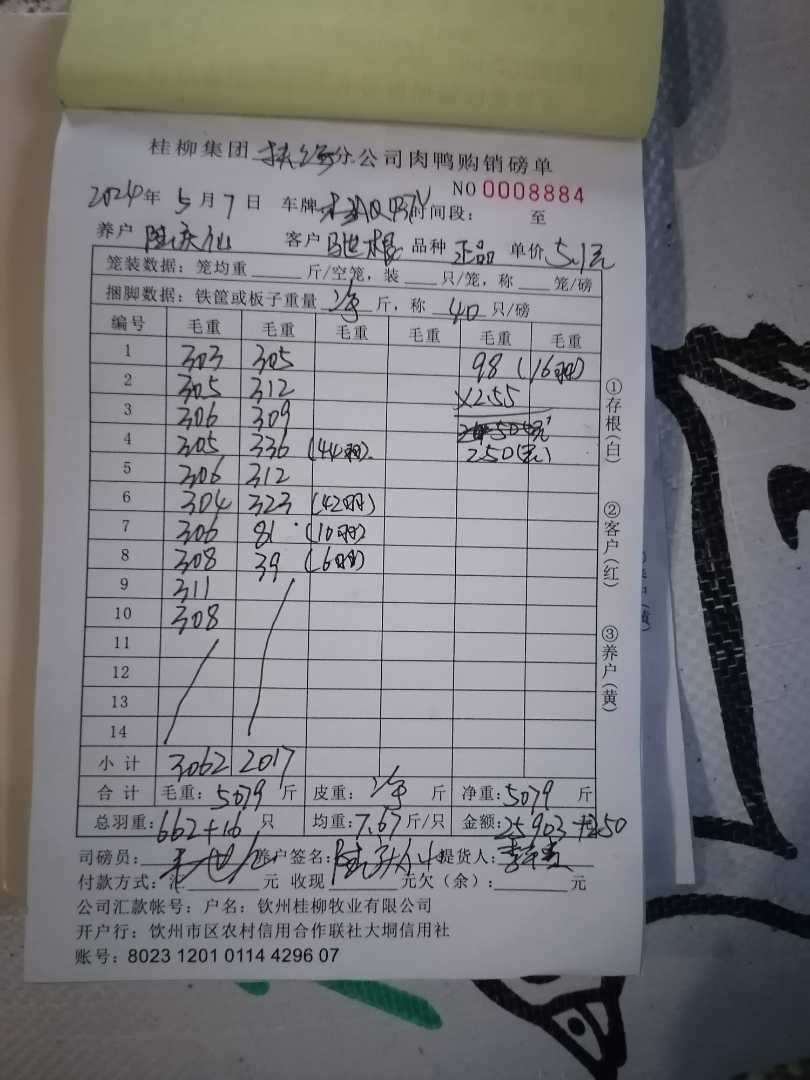 桂柳集团 分公司肉鸭购销磅单
NO 0008884
2024年 5月 7日 车牌 时间段： 至
养户 陆庆仙 客户 品种 正品 单价 5.1元
笼装数据：笼均重 斤/空笼，装 只/笼，称 笼/磅
捆脚数据：铁筐或板子重量 净 斤，称 40 只/磅
编号 毛重 毛重 毛重 毛重 毛重 毛重
1 303 305 98 (16羽)
2 305 312 ×2.55
3 306 309
4 305 336 (44羽) 250(元)
5 306 312
6 304 323 (42羽)
7 306 81 (10羽)
8 308 39 (6羽)
9 311
10 308
11
12
13
14
小计 3062 2017
合计 毛重：5079 斤 皮重：净 斤 净重：5079 斤
总羽重：662+16 只 均重：7.67斤/只 金额：25903+250
司磅员： 养户签名： 提货人：
付款方式：汇 元 收现 元欠（余）： 元
公司汇款帐号：户名：钦州桂柳牧业有限公司
开户行：钦州市区农村信用合作联社大垌信用社
账号：8023 1201 0114 4296 07
①存根（白）
②客户（红）
③养户（黄）